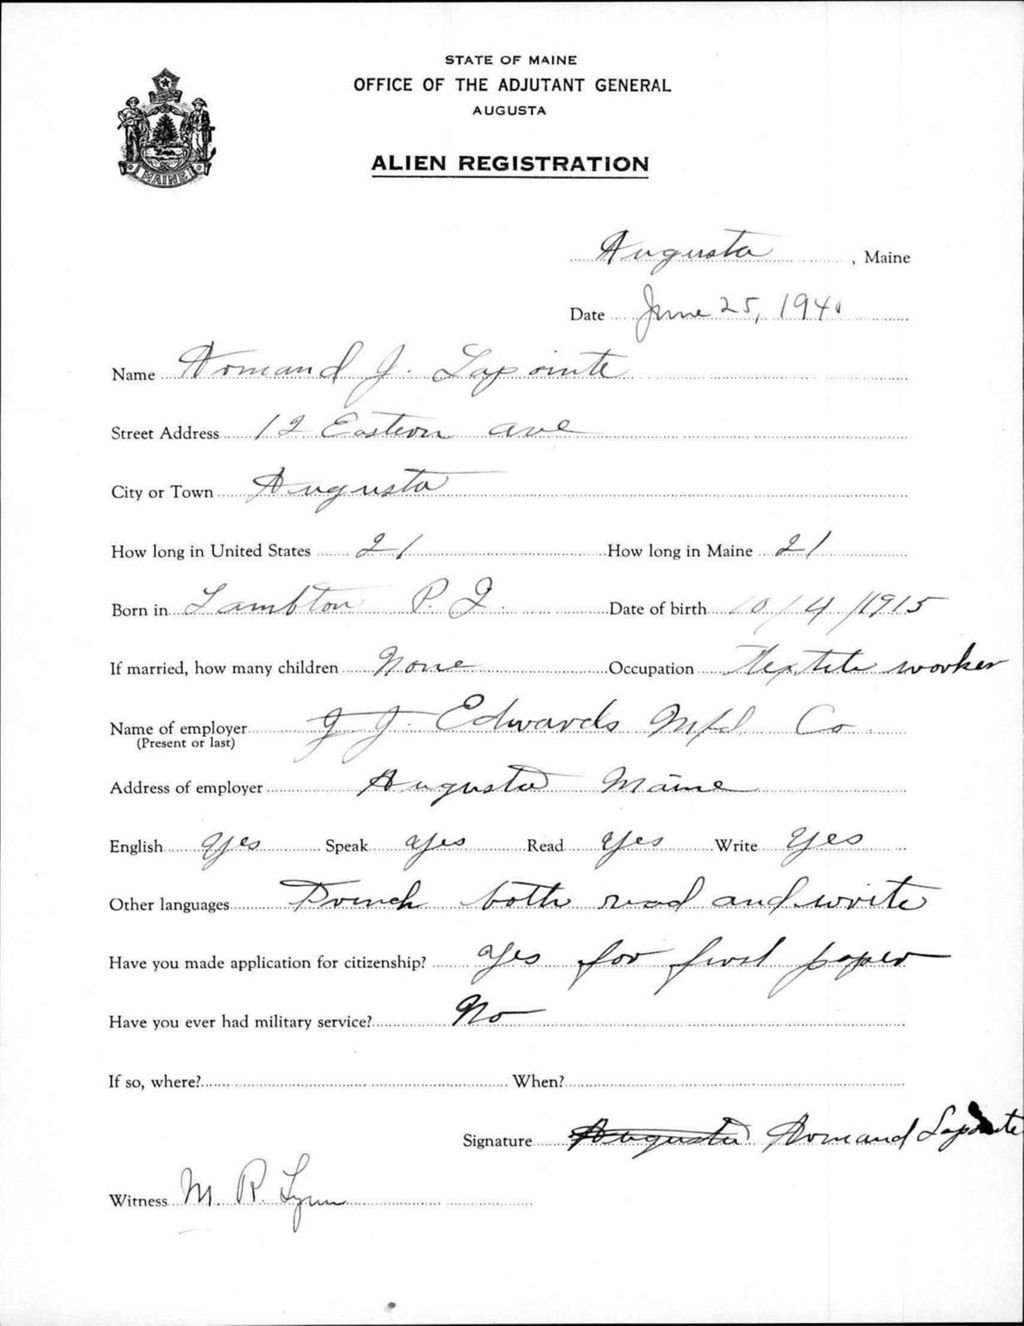 STATE OF MAINE
OFFICE OF THE ADJUTANT GENERAL
AUGUSTA
MAINE
ALIEN REGISTRATION
Augusta, Maine
Date June 25, 1940
Name Armand J. Lapointe
Street Address 12 Eastern ave
City or Town Augusta
How long in United States 21 How long in Maine 21
Born in Lambton P. Q. Date of birth 10/4/1915
If married, how many children None Occupation Textile worker
Name of employer J J. Edwards Mfd. Co
(Present or last)
Address of employer Augusta Maine
English Yes Speak Yes Read Yes Write Yes
Other languages French both read and write
Have you made application for citizenship? Yes for first paper
Have you ever had military service? No
If so, where? When?
Signature Augusta Armand Lapointe
Witness M. R. Lynn